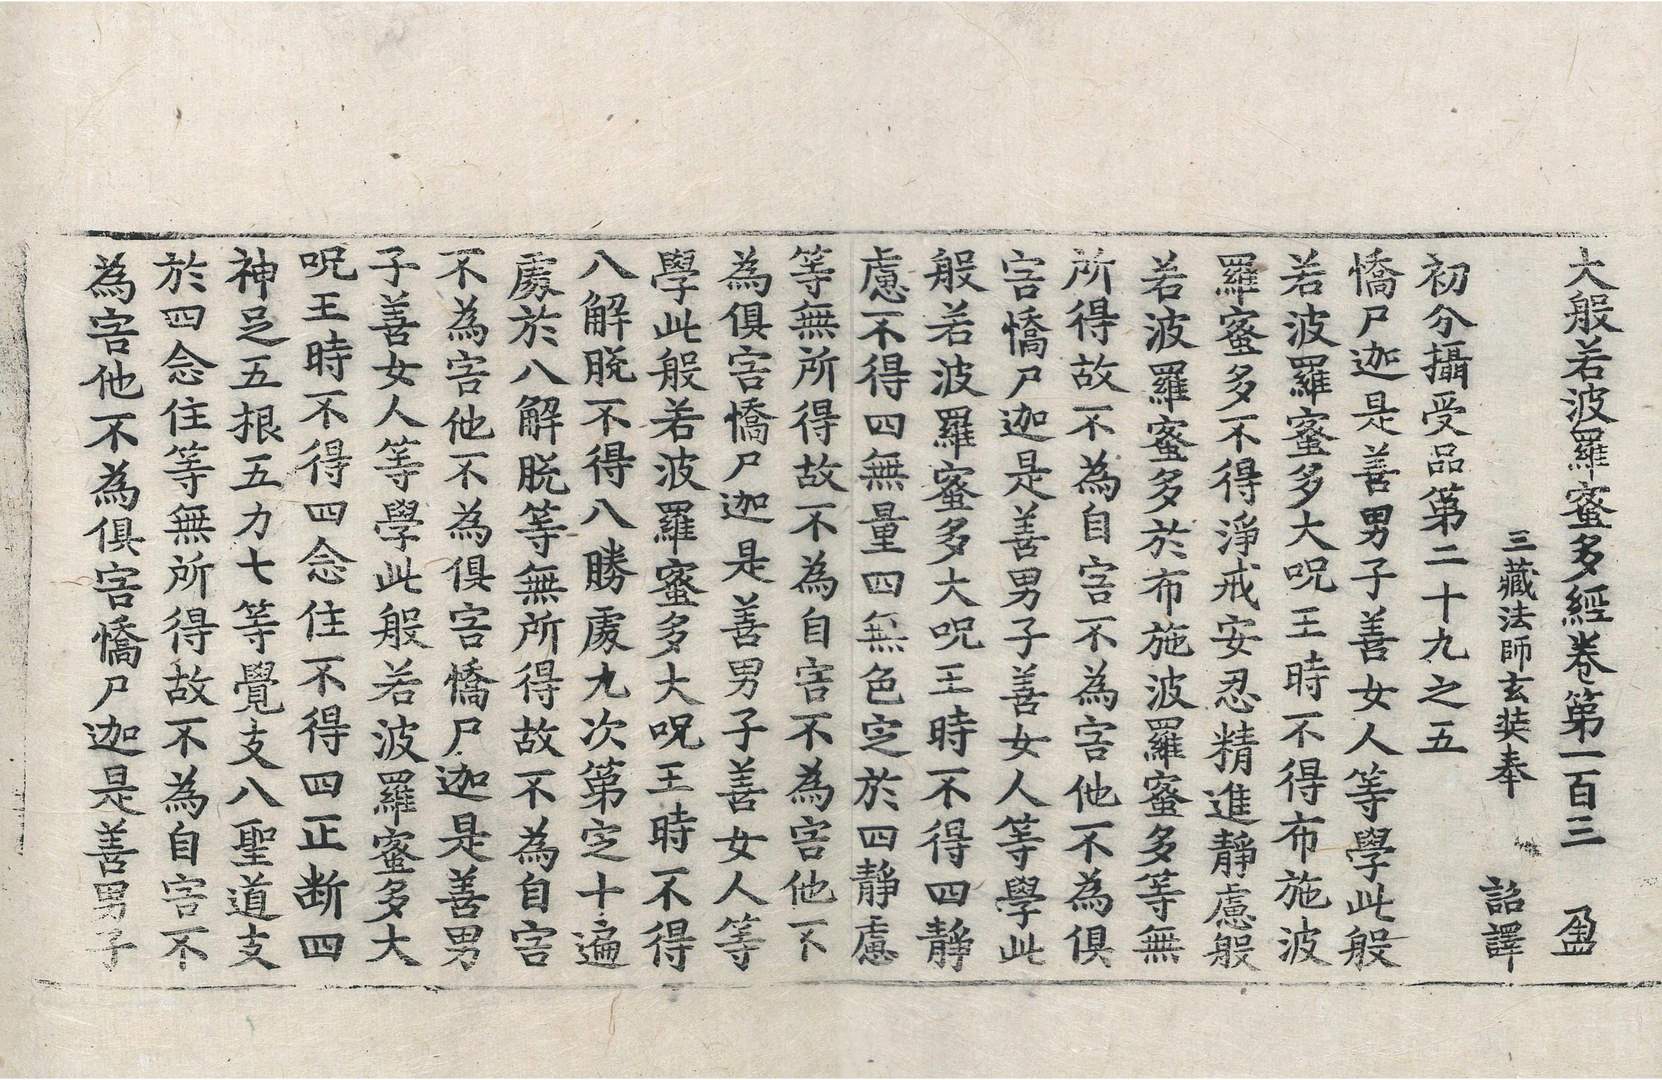 大般若波羅蜜多經卷第一百三 盈
三藏法師玄奘奉 詔譯
初分攝受品第二十九之五
憍尸迦是善男子善女人等學此般
若波羅蜜多大呪王時不得布施波
羅蜜多不得淨戒安忍精進靜慮般
若波羅蜜多於布施波羅蜜多等無
所得故不為自害不為害他不為俱
害憍尸迦是善男子善女人等學此
般若波羅蜜多大呪王時不得四靜
慮不得四無量四無色定於四靜慮
等無所得故不為自害不為害他不
為俱害憍尸迦是善男子善女人等
學此般若波羅蜜多大呪王時不得
八解脫不得八勝處九次第定十遍
處於八解脫等無所得故不為自害
不為害他不為俱害憍尸迦是善男
子善女人等學此般若波羅蜜多大
呪王時不得四念住不得四正断四
神足五根五力七等覺支八聖道支
於四念住等無所得故不為自害不
為害他不為俱害憍尸迦是善男子